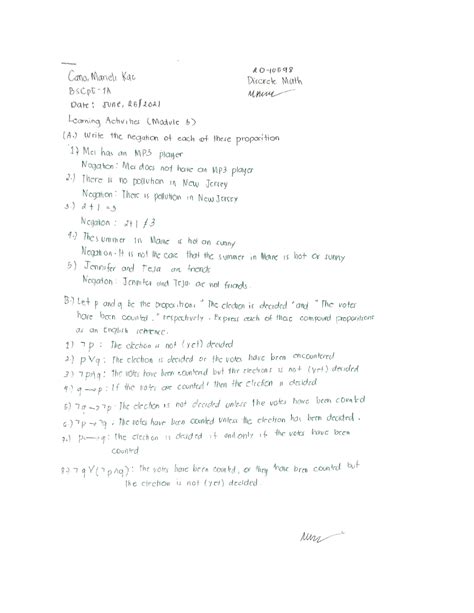 Cana, Marieli Kae
20-10598
BSCpE-1A
Discrete Math
Date: June, 26/2021
Learning Activities (Module 5)
(A.) Write the negation of each of these proporition
1.) Mei has an MP3 player
Nogation: Mei does not have an MP3 player
2.) There is no pollution in New Jersey
Negation: There is pollution in New Jersey
3.) 2+1=3
Negation: 2+1≠3
4.) The summer in Maine is hot an sunny
Negation: It is not the case that the summer in Maine is hot or sunny
5) Jennifer and Teja are friends
Negation: Jennifer and Teja are not friends.
B.) Let p and q be the propositions "The election is decided" and "The votes
have been counted," respectively. Express each of these compound propositions
as an English sentence.
1) ¬p : The election is not (yet) decided
2.) p∨q : The election is decided or the votes have been encountered
3.) ¬p∧q : The votes have been countered but the elections is not (yet) decided
4.) q→p : If the votes are counted then the election is decided
5.) ¬q→¬p : The election is not decided unless the votes have been counted
6.) ¬p→¬q. The votes have been counted unless the election has been decided.
7.) p↔q : The election is decided if and only if the votes have been
counted
8.) ¬q∨(¬p∧q) : The votes have been counted, or they have been counted but
the election is not (yet) decided.